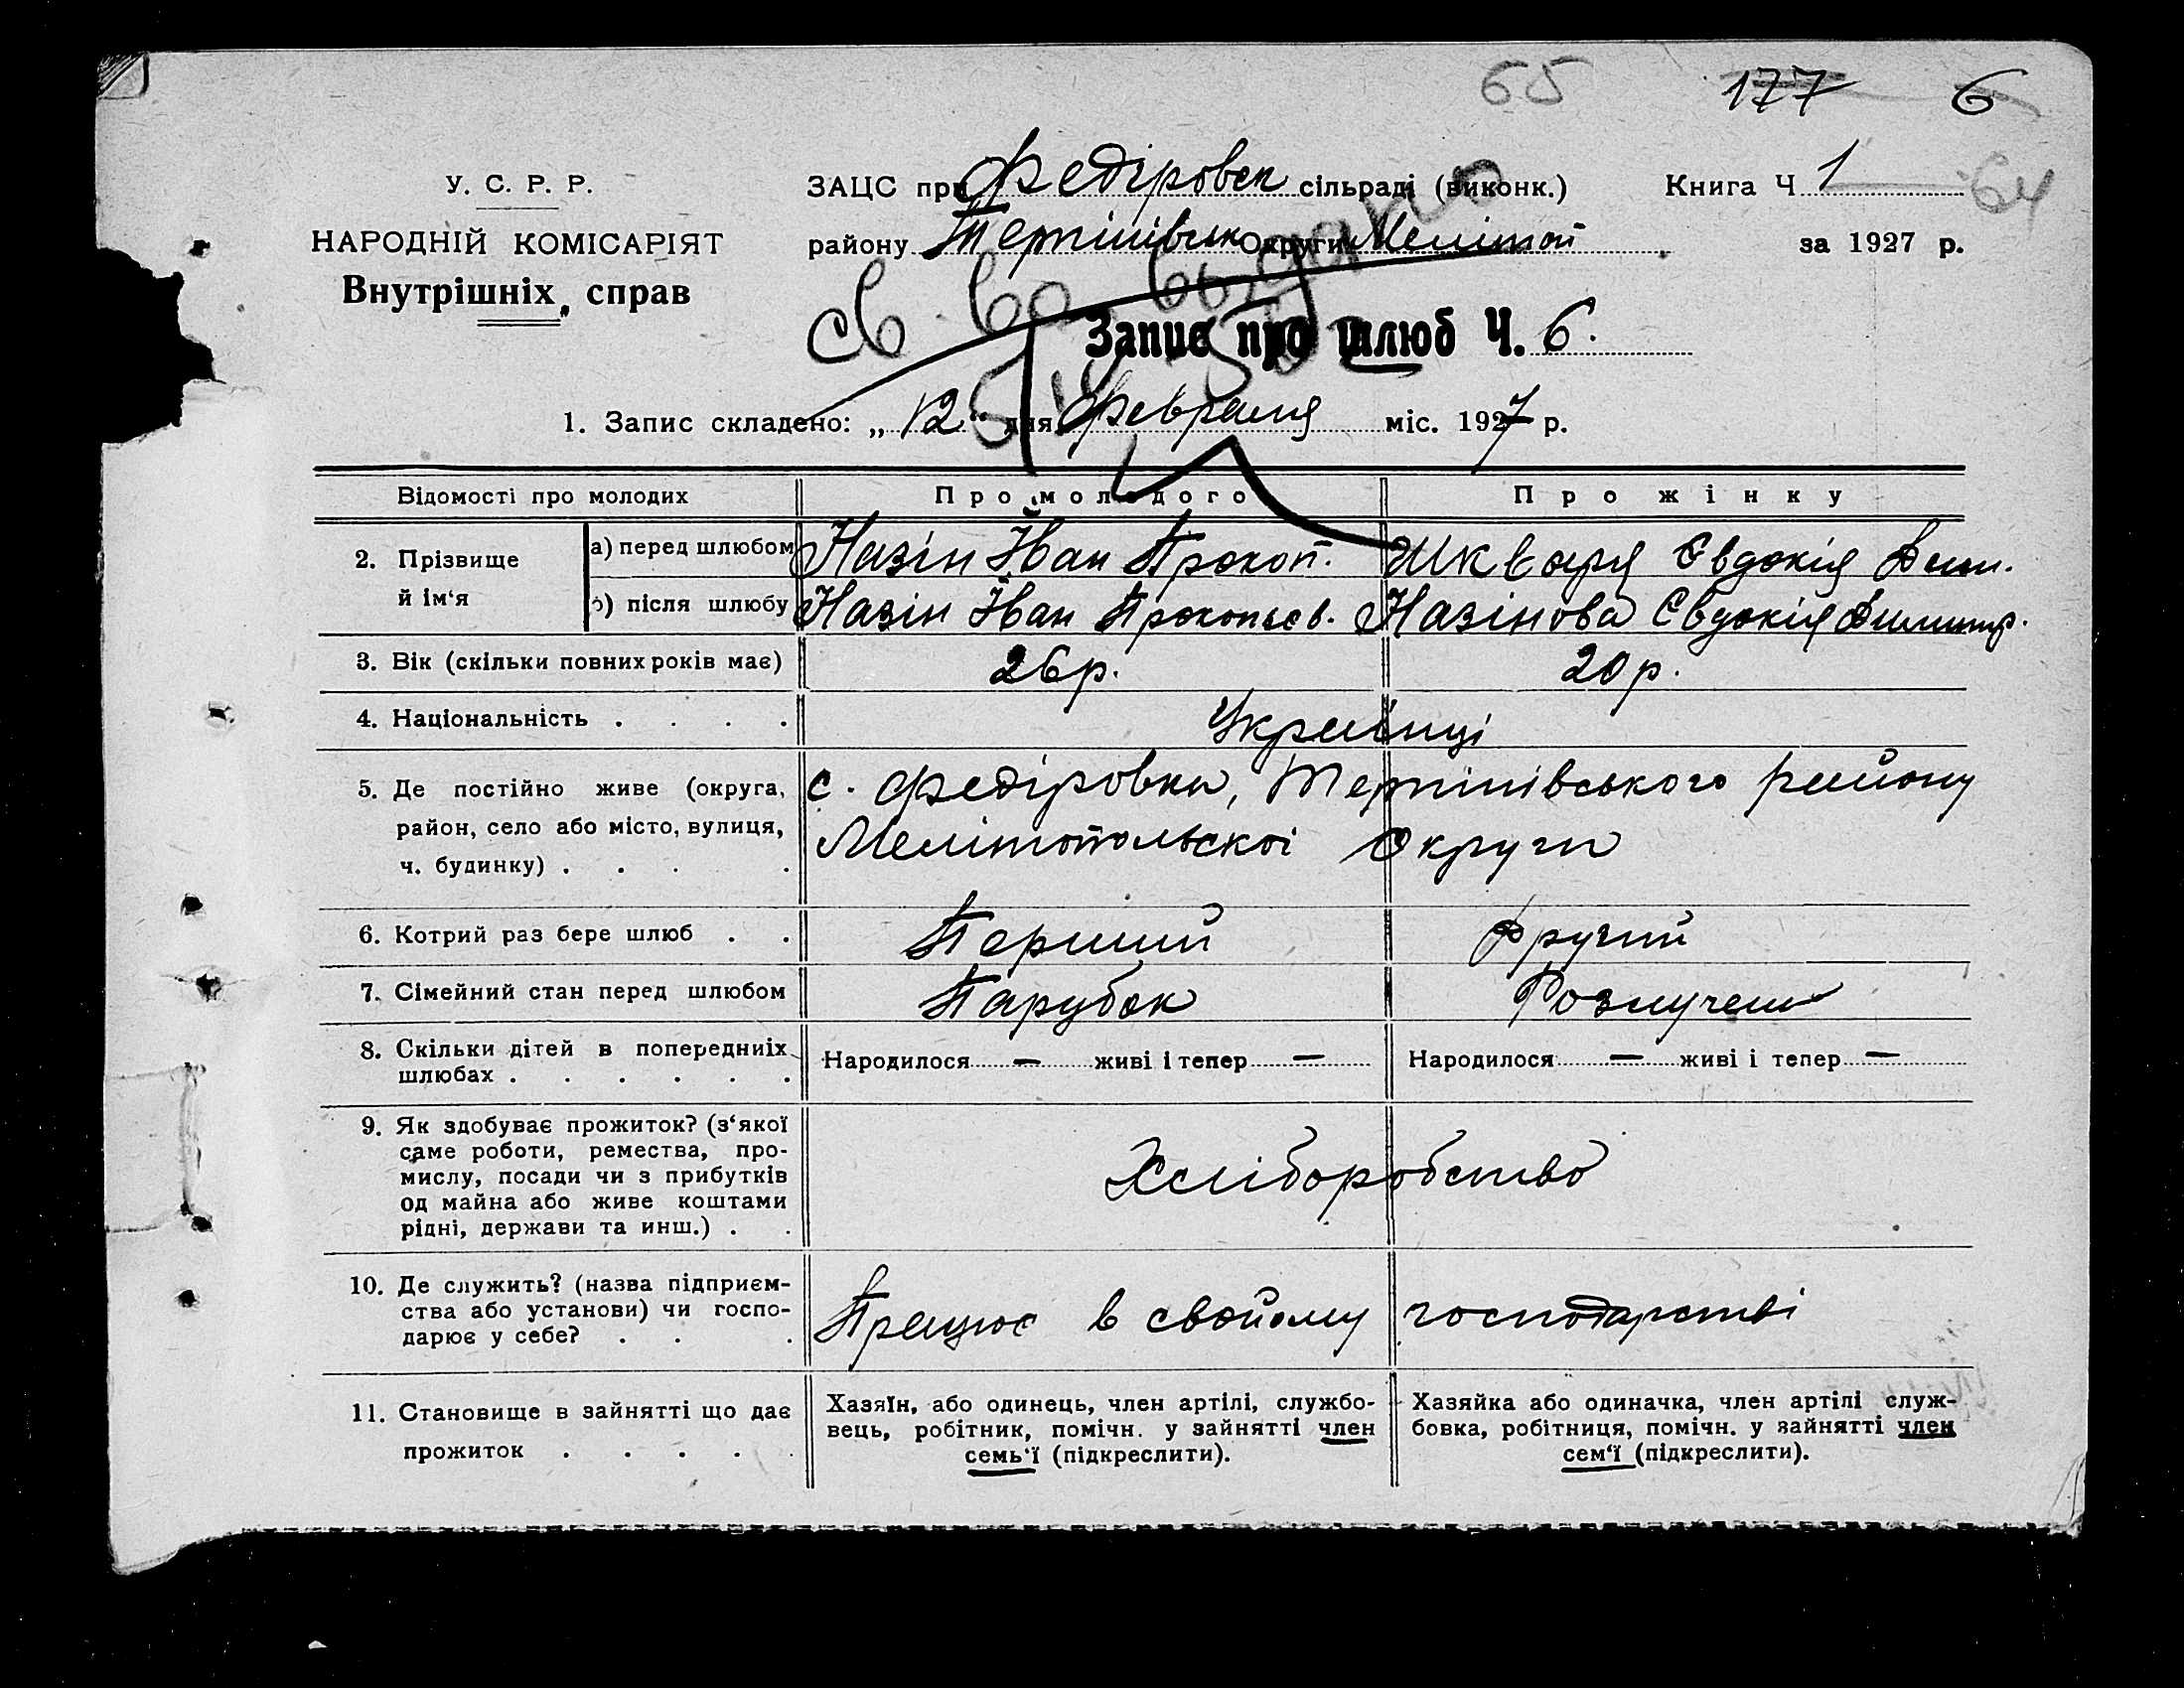 65 177 6
У. С. Р. Р.
НАРОДНІЙ КОМІСАРІЯТ
Внутрішніх справ
ЗАЦС при Федіровск сільраді (виконк.)
Книга Ч 1 64
району Терпінівськ Округи Мелітоп
за 1927 р.
св-во выдано
Запис про шлюб Ч. 6.
1. Запис складено: „12“ дня Февраля міс. 1927 р.
Відомості про молодих
Про молодого
Про жінку
2. Прізвище й ім‘я
а) перед шлюбом
Назін Йван Прокоп.
Шкваря Євдокія Дим.
б) після шлюбу
Назін Йван Прокопьєв.
Назінова Євдокія Димитр.
3. Вік (скільки повних років має)
26 р.
20 р.
4. Національність . . . .
Украінці
5. Де постійно живе (округа,
район, село або місто, вулиця,
ч. будинку) . . . .
с. Федіровка, Терпінівського району
Мелітопольскоі Округи
6. Котрий раз бере шлюб . .
Перший
Другий
7. Сімейний стан перед шлюбом
Парубок
Розлучена
8. Скільки дітей в попередниіх
шлюбах . . . . . .
Народилося — живі і тепер —
Народилося — живі і тепер —
9. Як здобуває прожиток? (з‘якої
саме роботи, ремества, про-
мислу, посади чи з прибутків
од майна або живе коштами
рідні, держави та инш.) . .
Хліборобство
10. Де служить? (назва підприєм-
ства або установи) чи госпо-
дарює у себе? . . .
Працює в свойому господарстві
11. Становище в зайнятті що дає
прожиток . . . . .
Хазяїн, або одинець, член артілі, службо-
вець, робітник, помічн. у зайнятті член
семь‘ї (підкреслити).
Хазяйка або одиначка, член артілі служ-
бовка, робітниця, помічн. у зайнятті член
сем‘ї (підкреслити).